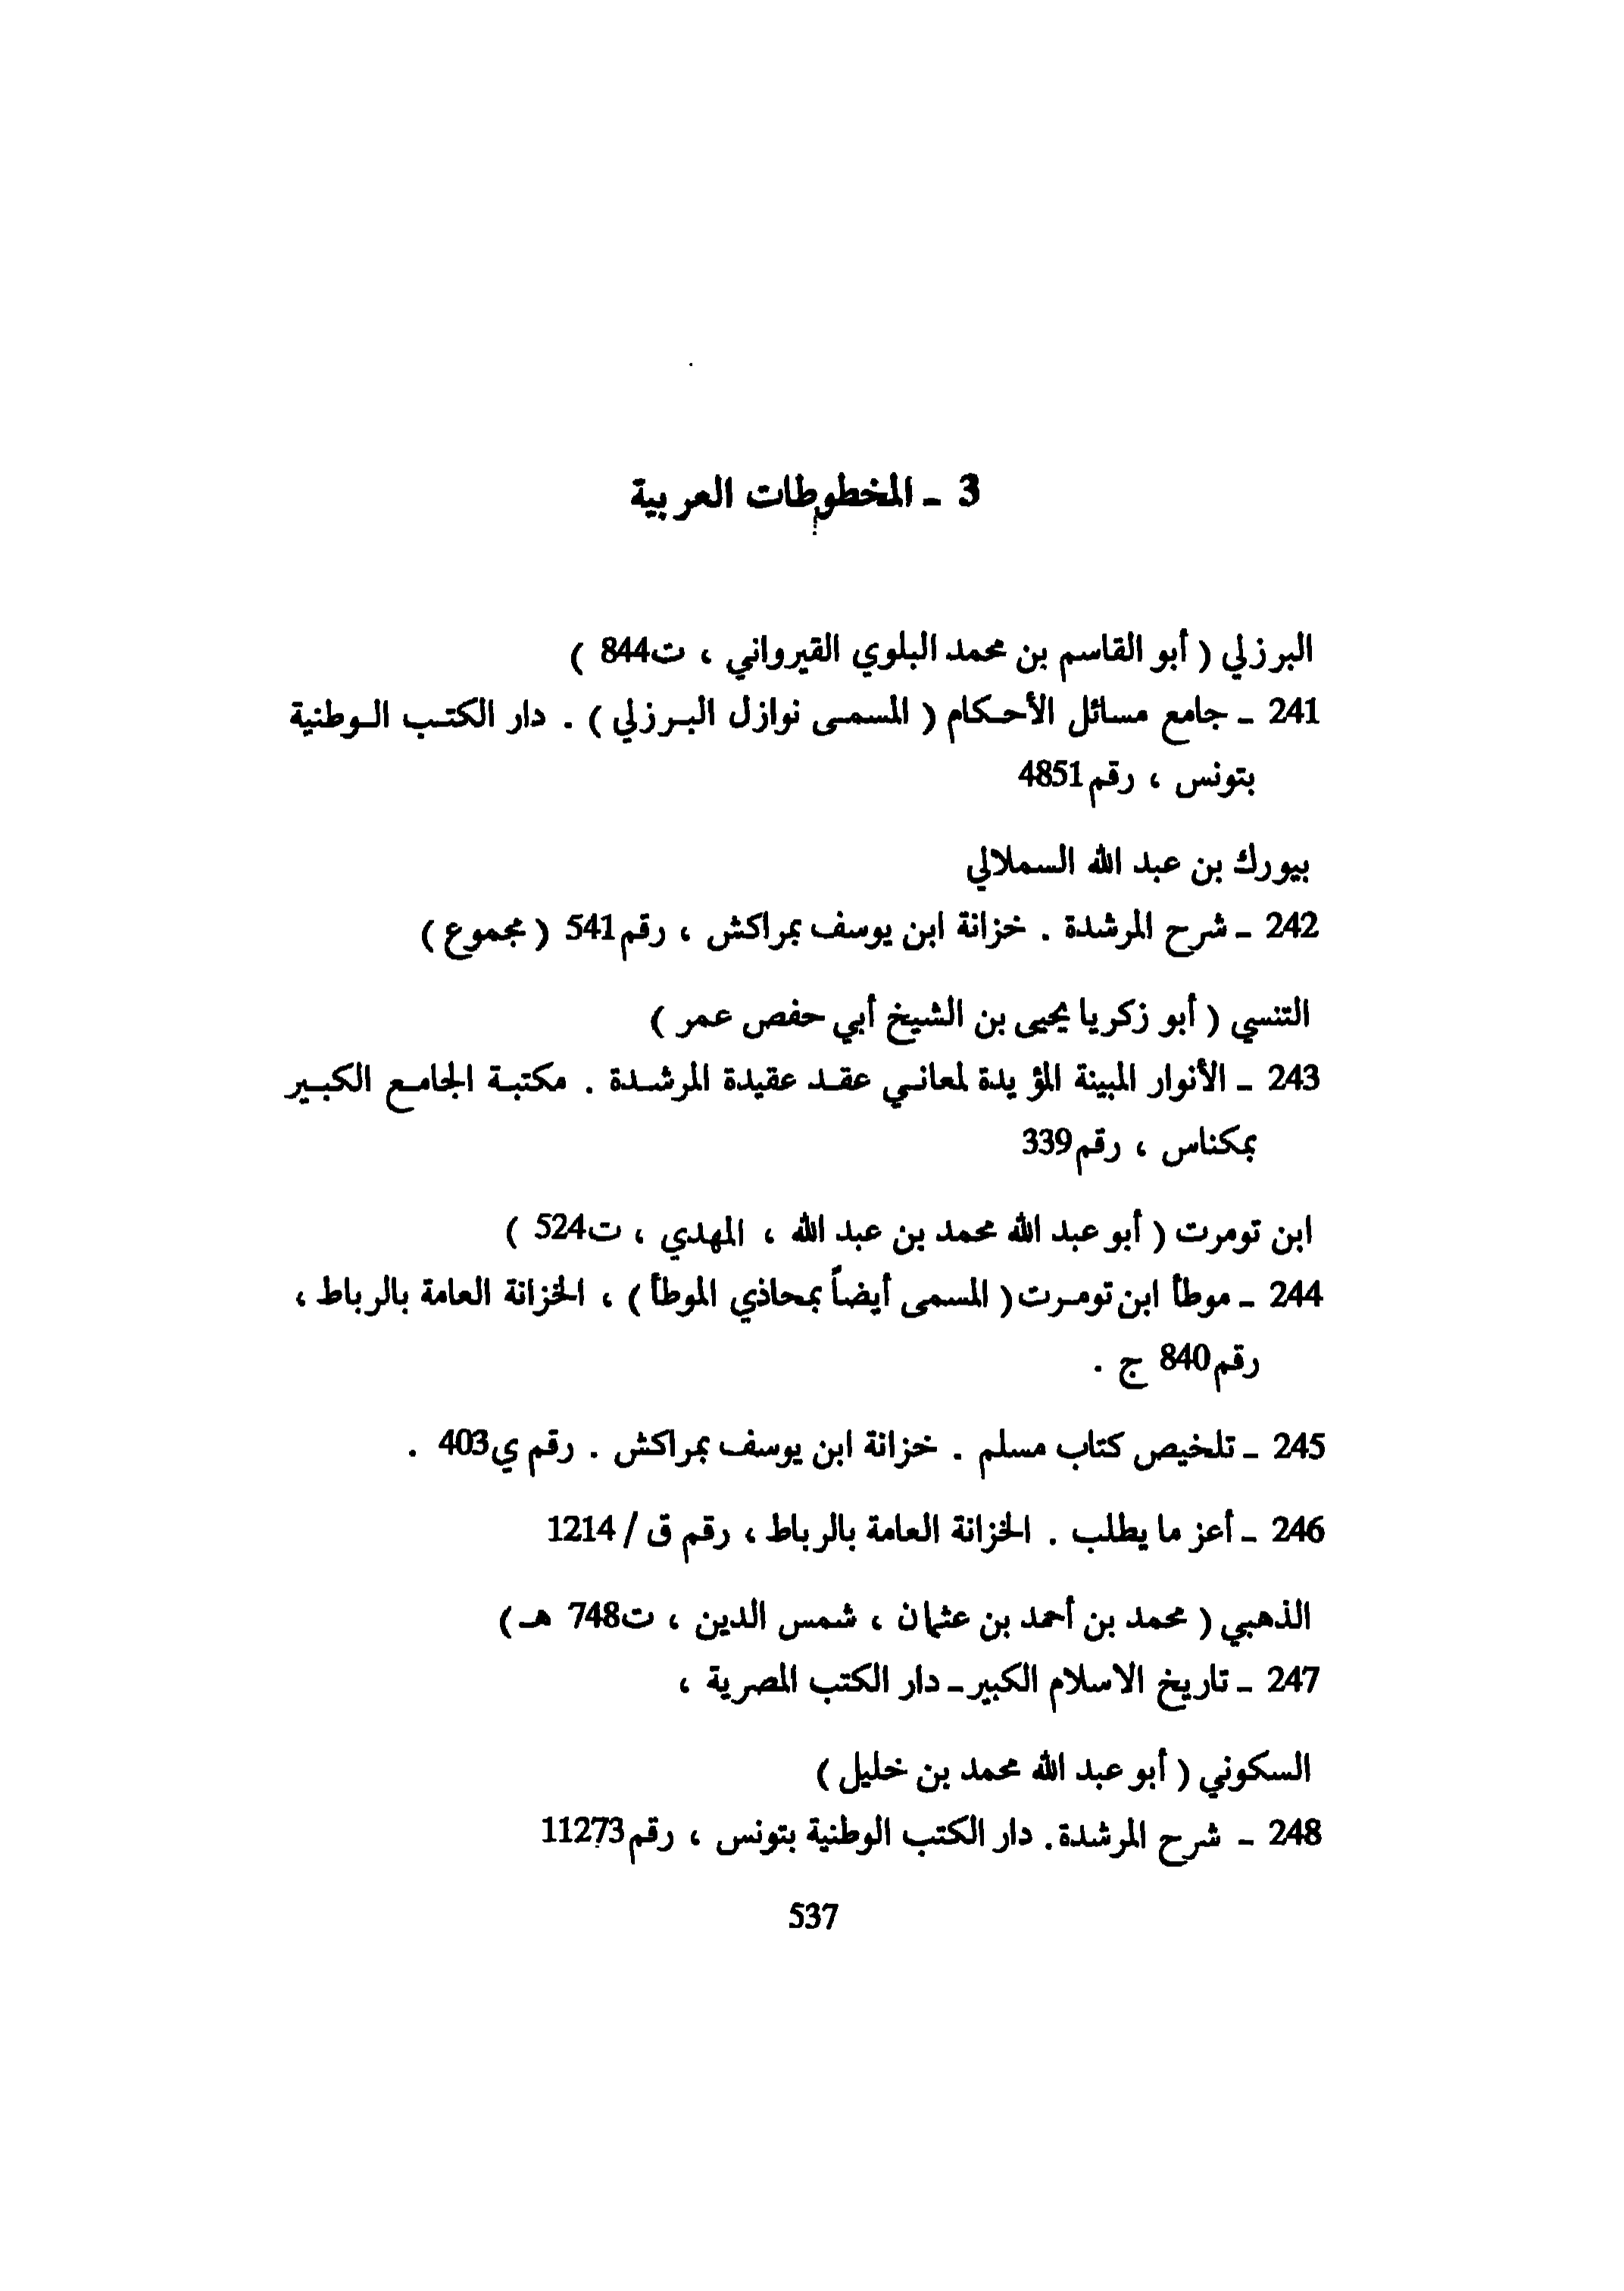 3 ـ المخطوطات العربية
البرزلي ( أبو القاسم بن محمد البلوي القيرواني ، ت844 )
241 ـ جامع مسائل الأحكام ( المسمى نوازل البرزلي ) . دار الكتب الوطنية
بتونس ، رقم 4851
بيورك بن عبد الله السملالي
242 ـ شرح المرشدة . خزانة ابن يوسف بمراكش ، رقم 541 ( مجموع )
التنسي ( أبو زكريا يحيى بن الشيخ أبي حفص عمر )
243 ـ الأنوار المبينة المؤيدة لمعاني عقد عقيدة المرشدة . مكتبة الجامع الكبير
بمكناس ، رقم 339
ابن تومرت ( أبو عبد الله محمد بن عبد الله ، المهدي ، ت524 )
244 ـ موطأ ابن تومرت ( المسمى أيضاً بمحاذي الموطأ ) ، الخزانة العامة بالرباط ،
رقم 840 ج .
245 ـ تلخيص كتاب مسلم . خزانة ابن يوسف بمراكش . رقم ي403 .
246 ـ أعز ما يطلب . الخزانة العامة بالرباط ، رقم ق / 1214
الذهبي ( محمد بن أحمد بن عثمان ، شمس الدين ، ت748 هـ )
247 ـ تاريخ الاسلام الكبير ـ دار الكتب المصرية ،
السكوني ( أبو عبد الله محمد بن خليل )
248 ـ شرح المرشدة . دار الكتب الوطنية بتونس ، رقم 11273
537